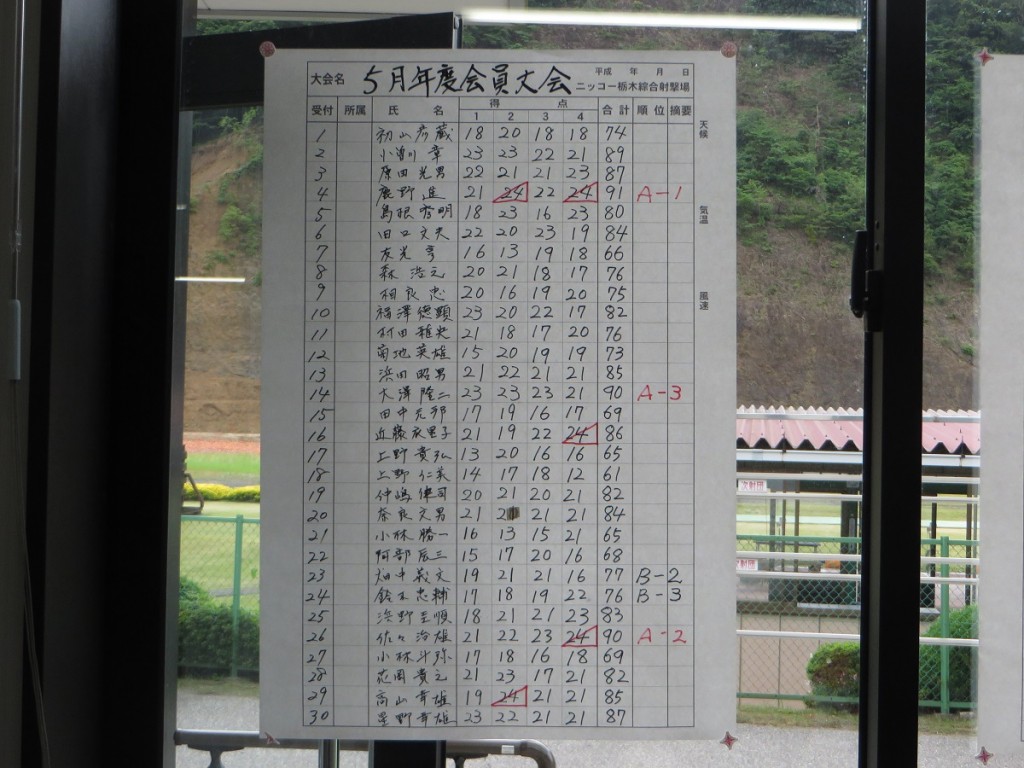 大会名 5月年度会員大会 平成 年 月 日
ニッコー栃木綜合射撃場
受付 所属 氏 名 得 点 合計 順位 摘要
1 2 3 4
天候
気温
風速
1 初山彦蔵 18 20 18 18 74
2 小曽川 章 23 23 22 21 89
3 原田光男 22 21 21 23 87
4 鹿野進 21 24 22 24 91 A-1
5 島根秀明 18 23 16 23 80
6 田口文夫 22 20 23 19 84
7 友光 16 13 19 18 66
8 森 浩元 20 21 18 17 76
9 相良忠 20 16 19 20 75
10 23 20 22 17 82
11 村田雅史 21 18 17 20 76
12 菊地英雄 15 20 19 19 73
13 浜田昭男 21 22 21 21 85
14 大澤隆二 23 23 23 21 90 A-3
15 田中 17 19 16 17 69
16 近藤衣里子 21 19 22 24 86
17 上野貴弘 13 20 16 16 65
18 上野仁美 14 17 18 12 61
19 仲嶋律司 20 21 20 21 82
20 奈良文男 21 2 21 21 84
21 小林勝一 16 13 15 21 65
22 阿部辰三 15 17 20 16 68
23 畑中教文 19 21 21 16 77 B-2
24 鈴木忠輔 17 18 19 22 76 B-3
25 浜野 18 21 21 23 83
26 佐々治雄 21 22 23 24 90 A-2
27 小林斗弥 17 18 16 18 69
28 花岡貴之 21 23 17 21 82
29 高山幸雄 19 24 21 21 85
30 星野幸雄 23 22 21 21 87
次射団
次射団